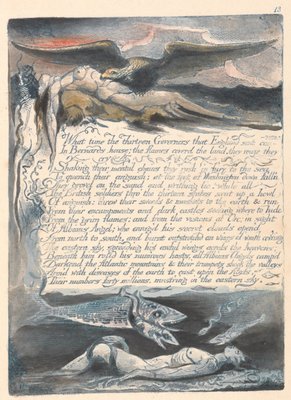 13
What time the thirteen Governors that England sent con
In Bernards house; the flames coverd the land, they rouze they cry
Shaking their mental chains they rush in fury to the sea
To quench their anguish; at the feet of Washington down fall'n
They grovel on the sand and writhing lie, while all
The British soldiers thro' the thirteen states sent up a howl
Of anguish: threw their swords & muskets to the earth & run
From their encampments and dark castles seeking where to hide
From the grim flames; and from the visions of Orc: in sight
Of Albions Angel; who enrag'd his secret clouds open'd
From north to south, and burnt outstretchd on wings of wrath cov'ring
The eastern sky, spreading his awful wings across the heavens;
Beneath him rolld his num'rous hosts, all Albions Angels camp'd
Darkend the Atlantic mountains & their trumpets shook the valleys
Arm'd with diseases of the earth to cast upon the Abyss,
Their numbers forty millions, must'ring in the eastern sky.